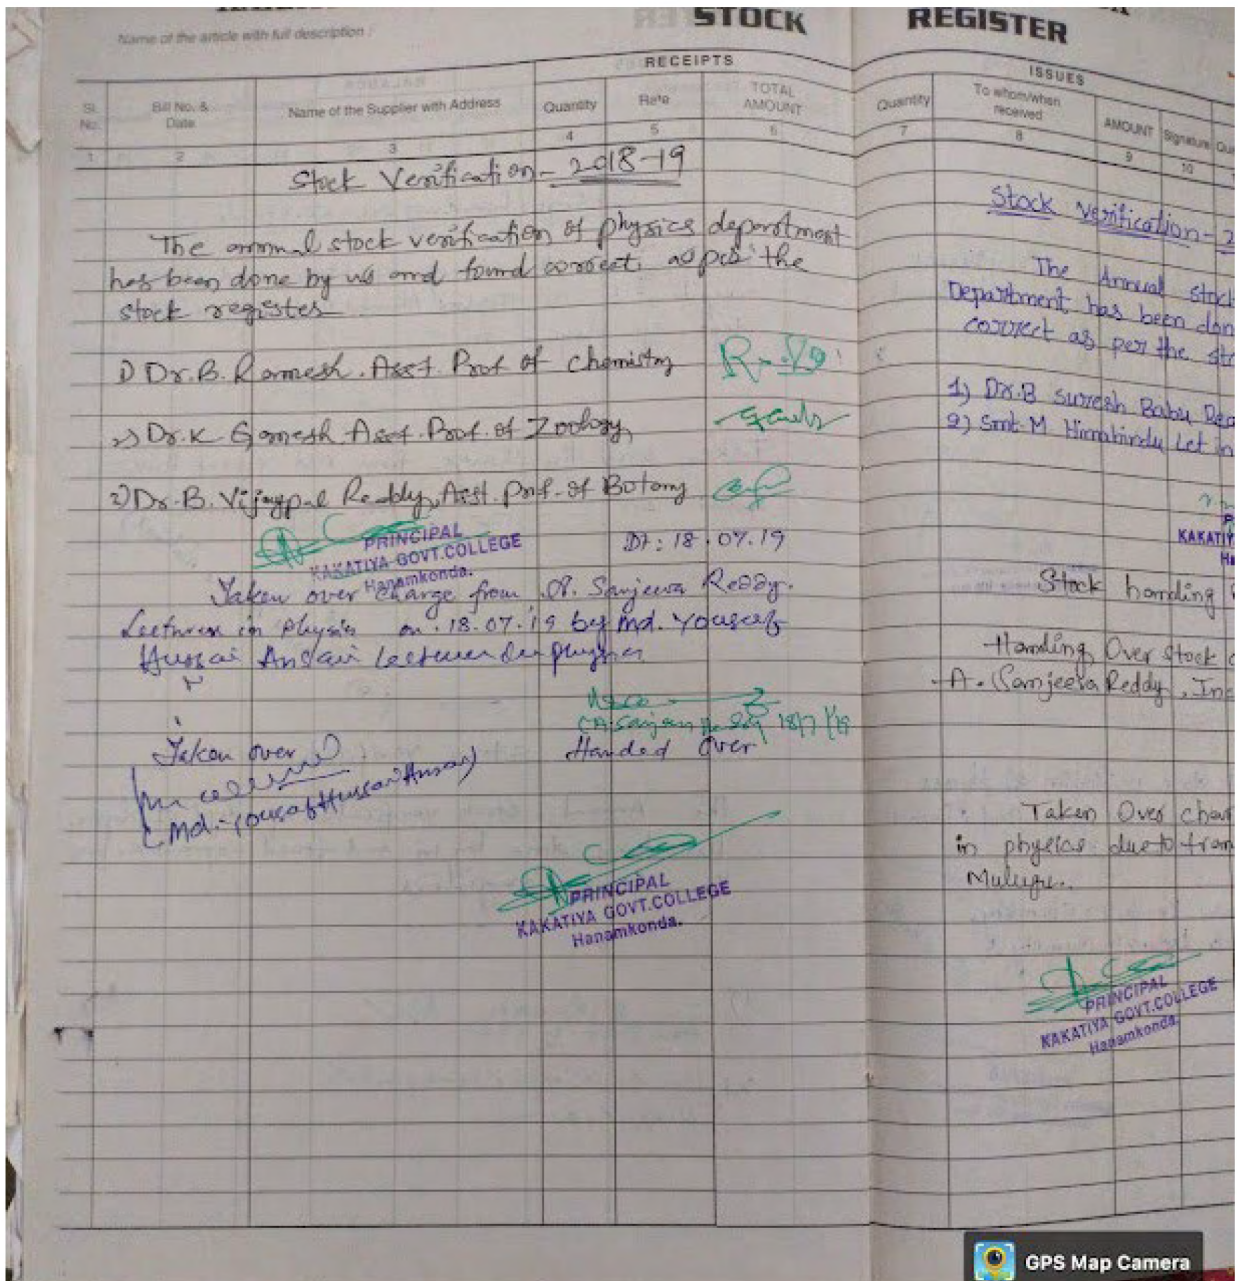 STOCK REGISTER
Name of the article with full description :
RECEIPTS
Sl. No.
Bill No. & Date
Name of the Supplier with Address
Quantity
Rate
TOTAL AMOUNT
1 2 3 4 5 6
Stock Verification - 2018-19
The annual stock verification of physics department
has been done by us and found correct. as per the
stock register
1) Dr. B. Ramesh. Asst. Prof of Chemistry
2) Dr. K. Ganesh Asst. Prof. of Zoology
2) Dr. B. Vijaypal Reddy, Asst. Prof. of Botany
PRINCIPAL
KAKATIYA GOVT.COLLEGE
Hanamkonda.
Dt: 18.07.19
Taken over charge from Sanjeeva Reddy.
Lecturer in Physics on 18.07.19 by Md. Yousaf
Hussai Ansari Lecturer in physics
18/7/19
Taken over
Handed Over
(Md. Yousaf Hussai Ansari)
PRINCIPAL
KAKATIYA GOVT.COLLEGE
Hanamkonda.
ISSUES
Quantity
To whom/when received
AMOUNT
Signature
7 8 9 10
Stock Verification - 2
The Annual stock
Department has been don
correct as per the sto
1) Dr. B Suresh Babu Rea
2) Smt. M Himabindu Lect in
KAKATIY
Stock handing
Handing Over stock
A. Sanjeeva Reddy, In
Taken Over char
in physics due to tran
Mulugu.
PRINCIPAL
KAKATIYA GOVT.COLLEGE
Hanamkonda.
GPS Map Camera